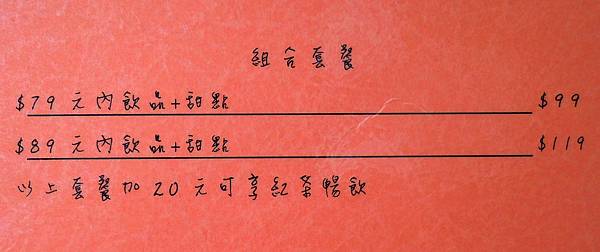 組合套餐
$79元內飲品+甜點 $99
$89元內飲品+甜點 $119
以上套餐加20元可享紅茶暢飲